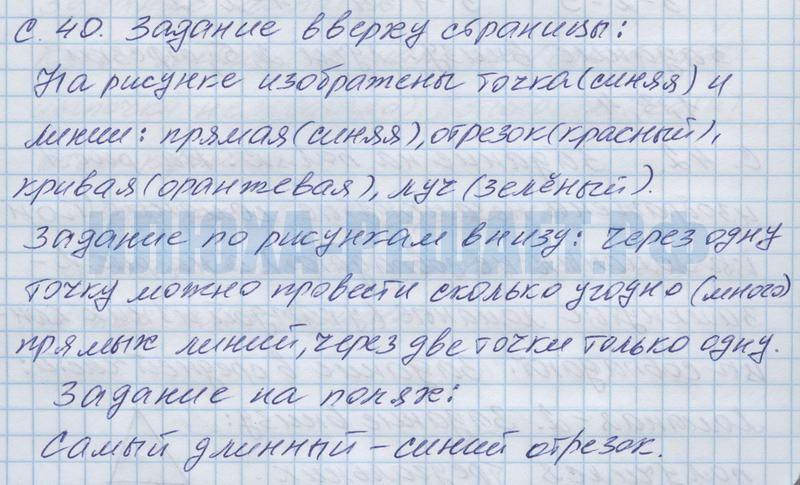 с. 40. Задание вверху страницы:
На рисунке изображены точка(синяя) и
линии: прямая(синяя), отрезок(красный),
кривая(оранжевая), луч(зелёный).
ИЛЮХА-РЕШАЕТ.РФ
Задание по рисункам внизу: через одну
точку можно провести сколько угодно (много)
прямых линий, через две точки только одну.
Задание на полях:
Самый длинный – синий отрезок.